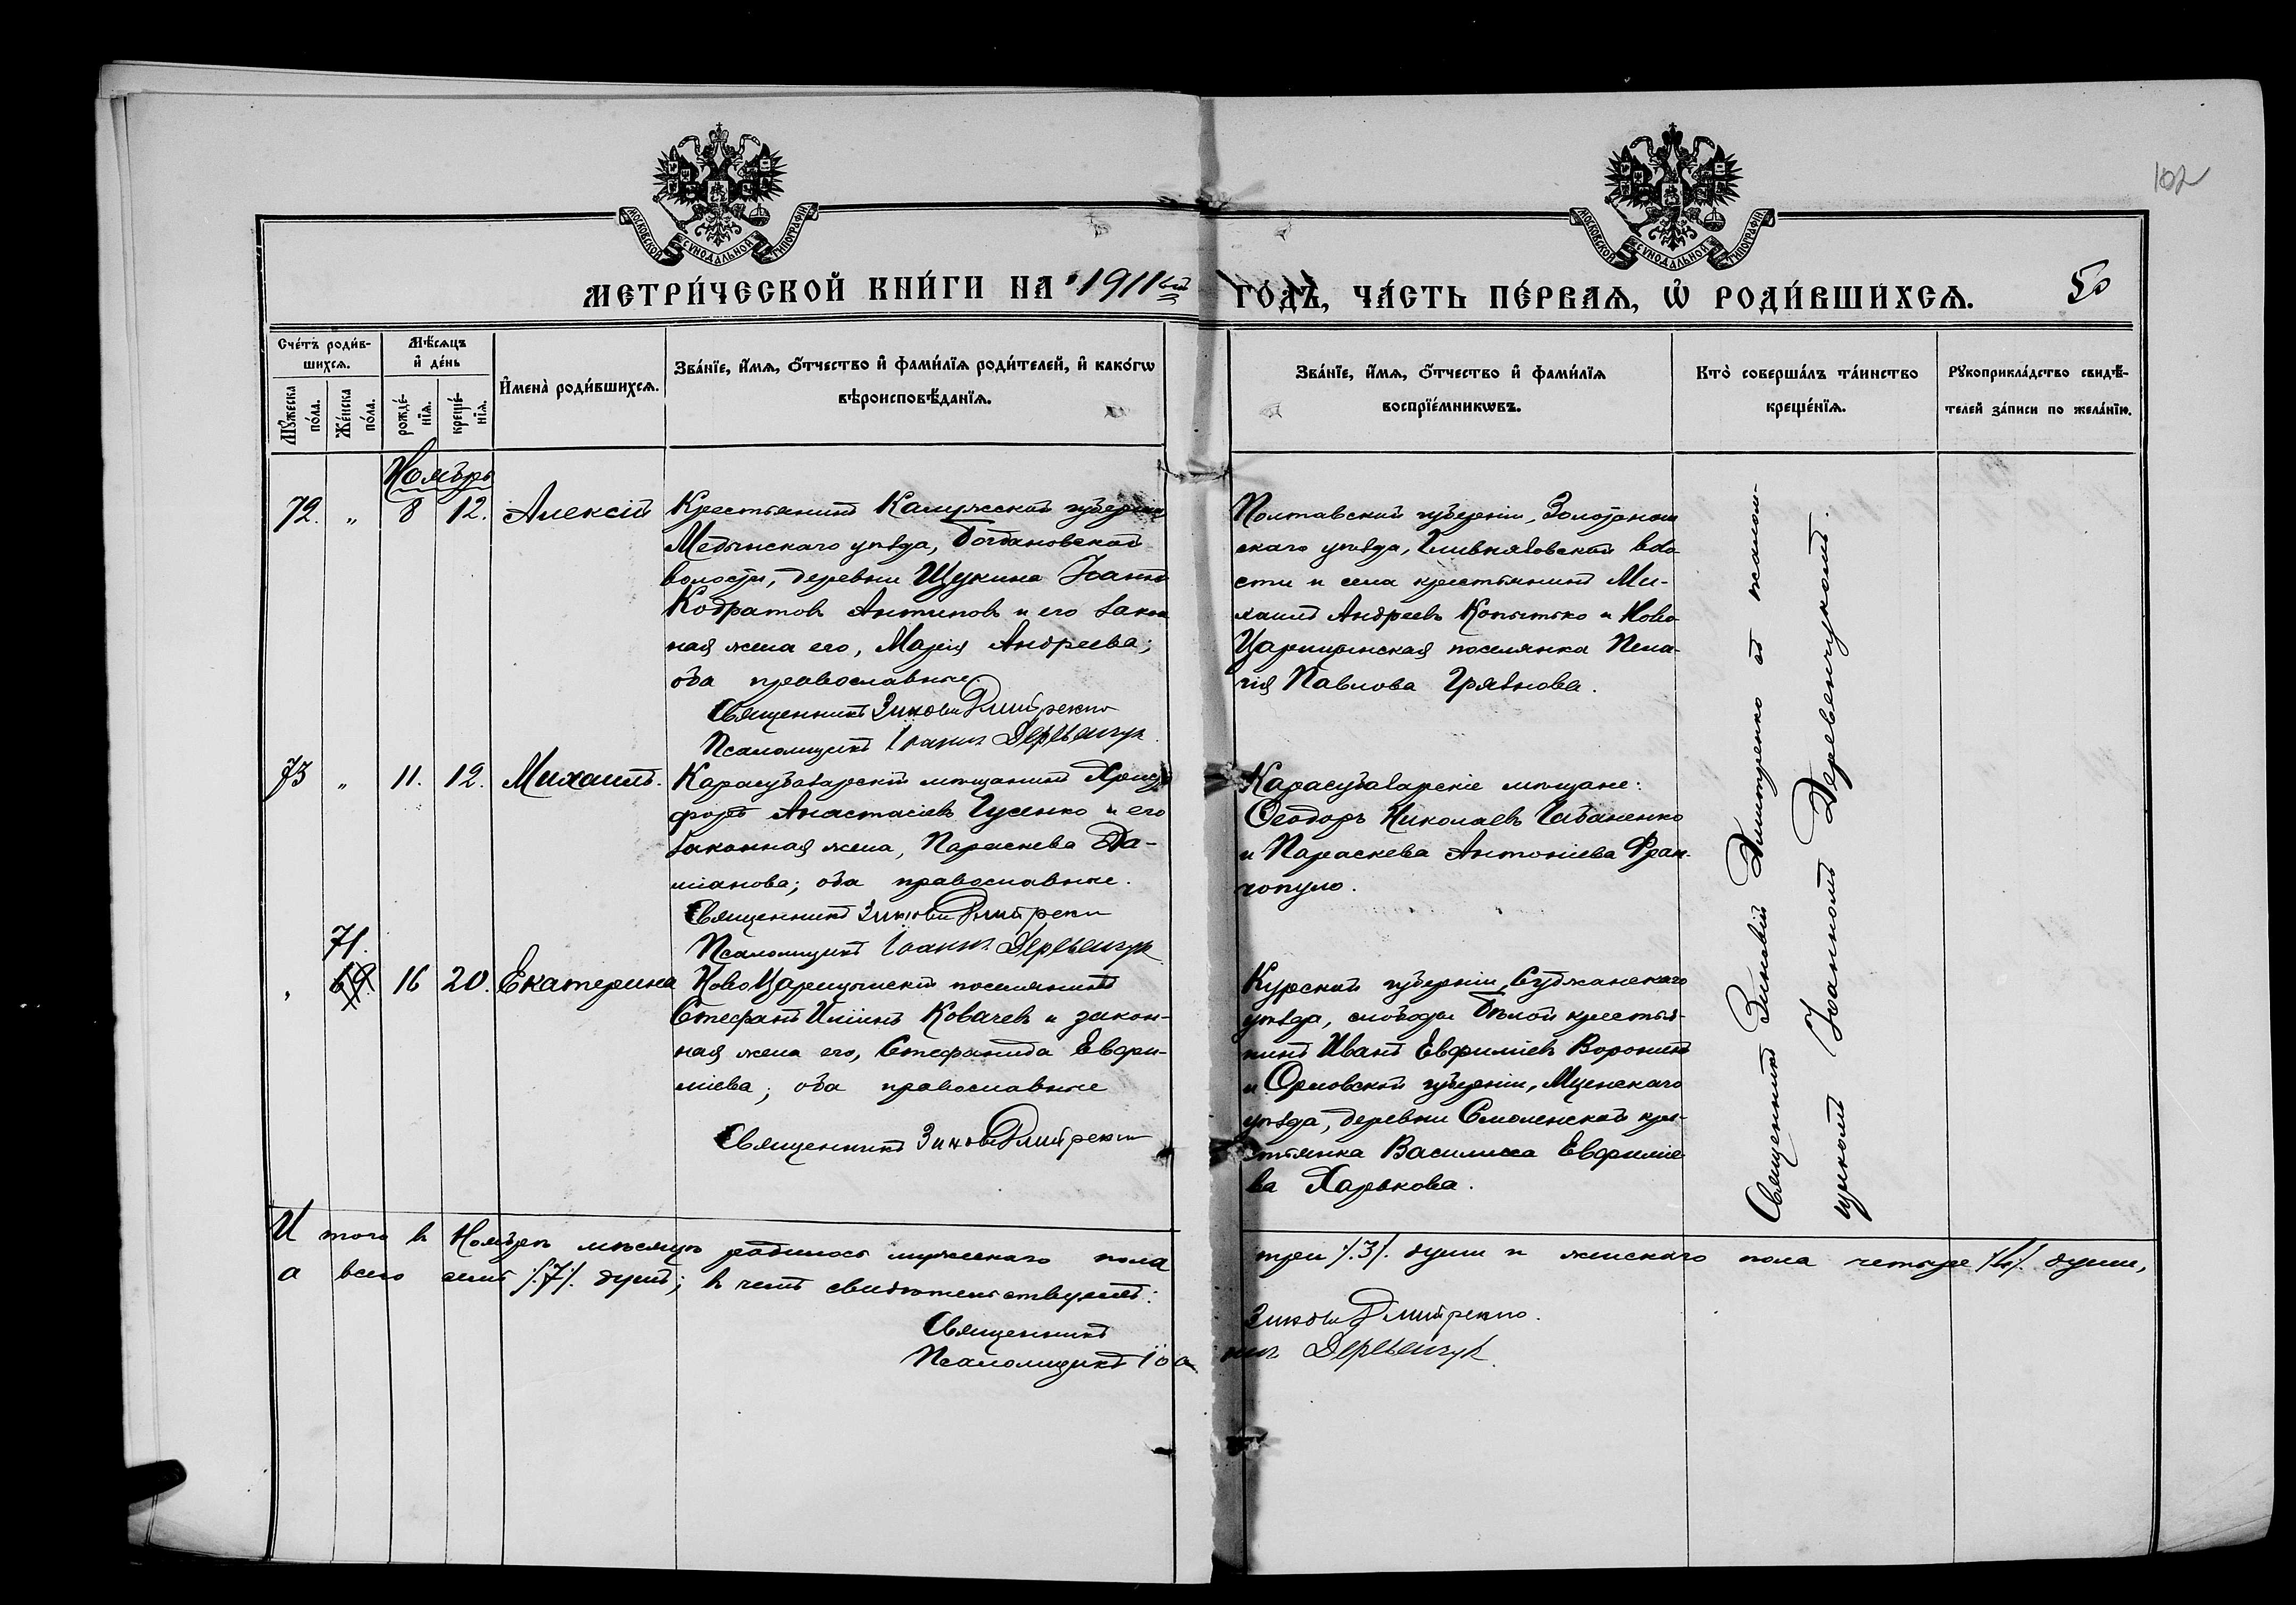 102
МОСКОВСКОЙ СѴНОДАЛЬНОЙ ТИПОГРАФІИ
МОСКОВСКОЙ СѴНОДАЛЬНОЙ ТИПОГРАФІИ
МЕТРИ́ЧЕСКОЙ КНИ́ГИ НА 1911ый ГО́ДЪ, ЧА́СТЬ ПЕ́РВАЯ, Ѡ РОДИ́ВШИХСЯ.
50
Сче́тъ роди́в-
шихся.
Му́жеска
по́ла.
Же́нска
по́ла.
Мѣ́сяцъ
и де́нь
рожде́-
нїя.
креще́-
нїя.
И҆мена̀ роди́вшихся.
Зва́нїе, и҆́мя, ѻ҆́тчество и҆ фами́лїя роди́телей, и҆ како́гѡ
вѣроисповѣ́данїя.
Зва́нїе, и҆́мя, ѻ҆́тчество и҆ фами́лїя
воспрїе́мникѡвъ.
Кто̀ соверша́лъ та́инство
креще́нїя.
Рꙋкоприкла́дство свидѣ́-
телей за́писи по жела́нїю.
Ноябрь
72. „ 8 12. Алексій
Крестьянинъ Калужской губерніи
Медынскаго уѣзда, Богдановской
волости, деревни Щукина Іоаннъ
Кодратовъ Антиповъ и его закон
ная жена его, Марія Андреева;
оба православные
Священникъ Зиновій Дмитренко
Псаломщикъ Іоаннъ Деревенчук
Полтавской губерніи, Золотонош
скаго уѣзда, воло
сти и села крестьянинъ Ми-
хаилъ Андреевъ Копытько и Ново
Царицынская поселянка Пела-
гія Павлова Грязнова.
73 „ 11. 12. Михаилъ.
Карасубазарскій мѣщанинъ Христо
форъ Анастасіевъ Гуленко и его
законная жена, Параскева Да-
міанова; оба православные.
Священникъ Зиновій Дмитренко
Псаломщикъ Іоаннъ Деревенчук
Карасубазарскіе мѣщане:
Ѳеодоръ Николаевъ Чабаненко
и Параскева Антоніева Фран-
гопуло.
71.
„ 69. 16 20. Екатерина
Ново Царицынскій поселянинъ
Стефанъ Иліинъ Ковачевъ и закон-
ная жена его, Стефанида Евфи-
міева; оба православные
Священникъ Зиновій Дмитренко
Курской губерніи, Суджанскаго
уѣзда, слободы Бѣлой крестья-
нинъ Иванъ Евфиміевъ Воронинъ
и Орловской губерніи, Мценскаго
уѣзда, деревни Смоленской кре-
стьянка Василиса Евфиміе
ва Харькова.
Священникъ Зиновій Дмитренко съ псалом-
щикомъ Іоанномъ Деревенчукомъ.
И того въ Ноябрѣ мѣсяцѣ родилось мужескаго пола три /.3/. души и женскаго пола четыре /4/. души,
а всего семь /.7/. душъ; въ чемъ свидѣтельствуемъ:
Священникъ Зиновій Дмитренко.
Псаломщикъ Іоаннъ Деревенчук.